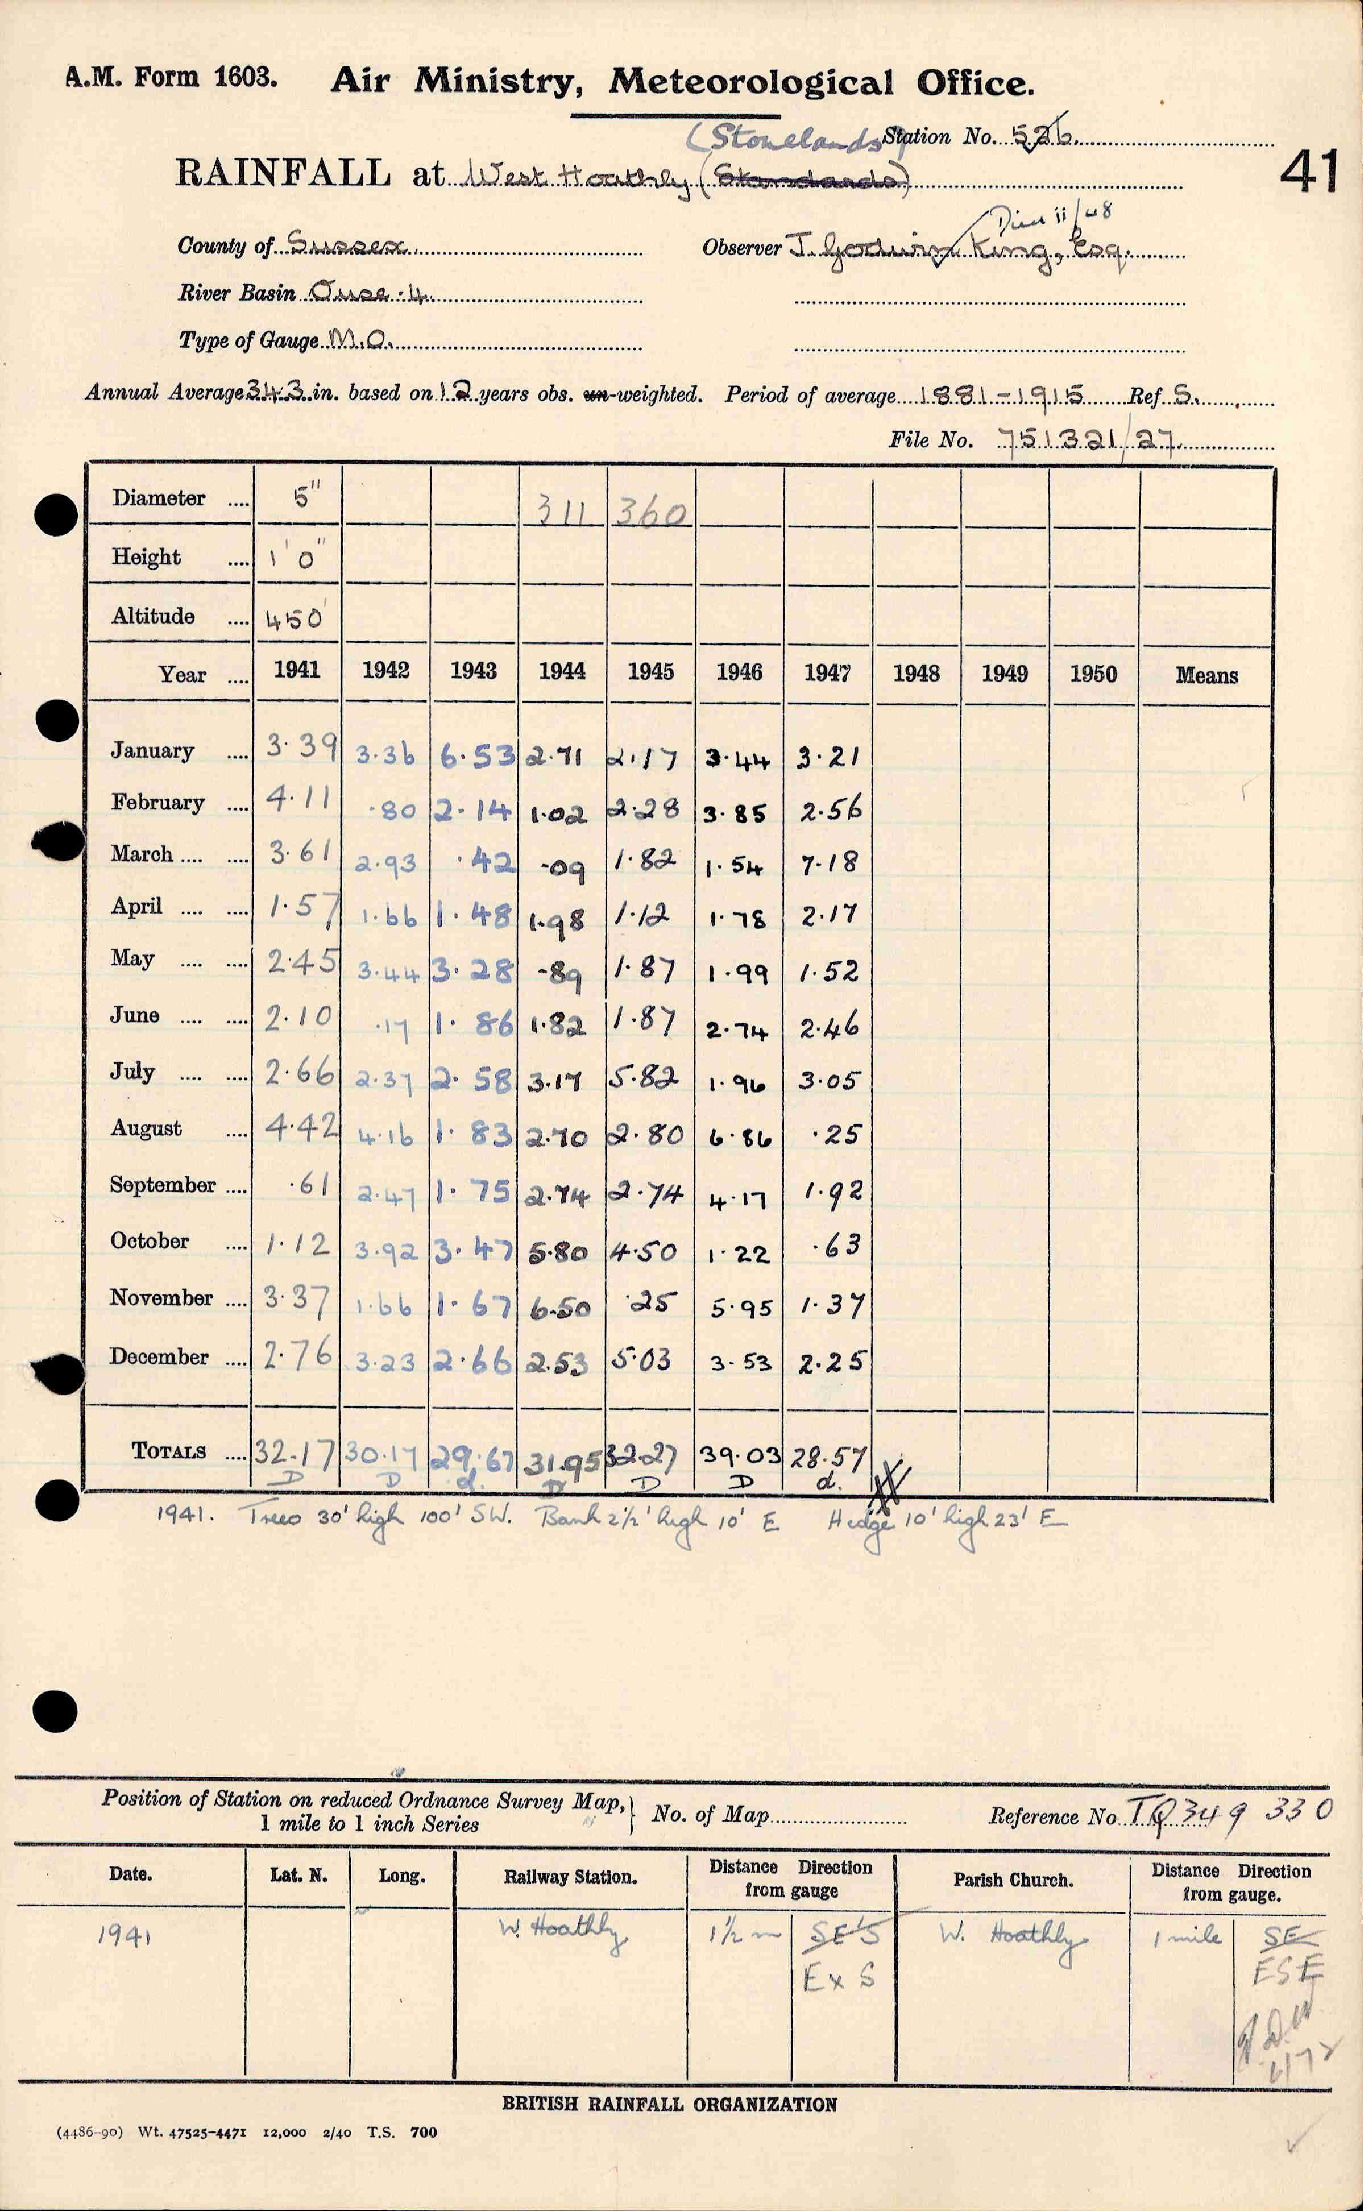 A.M. Form 1603. Air Ministry, Meteorological Office.
(Stonelands) Station No. 526.
RAINFALL at West Hoathly (Standards) 41
Died 11/48
County of Sussex. Observer J. Godwin King, Esq.
River Basin Ouse. 4.
Type of Gauge M.O.
Annual Average 34.3 in. based on 12 years obs. un-weighted. Period of average 1881-1915 Ref S.
File No. 751321/27
Diameter .... 5" 311 360
Height .... 1' 0"
Altitude .... 450'
Year .... 1941 1942 1943 1944 1945 1946 1947 1948 1949 1950 Means
January .... 3.39 3.36 6.53 2.71 2.17 3.44 3.21
February .... 4.11 .80 2.14 1.02 2.28 3.85 2.56
March .... .... 3.61 2.93 .42 .09 1.82 1.54 7.18
April .... .... 1.57 1.66 1.48 1.98 1.12 1.78 2.17
May .... .... 2.45 3.44 3.28 .89 1.87 1.99 1.52
June .... .... 2.10 .17 1.86 1.82 1.87 2.74 2.46
July .... .... 2.66 2.37 2.58 3.17 5.82 1.96 3.05
August .... 4.42 4.16 1.83 2.70 2.80 6.86 .25
September .... .61 2.47 1.75 2.74 2.74 4.17 1.92
October .... 1.12 3.92 3.47 5.80 4.50 1.22 .63
November .... 3.37 1.66 1.67 6.50 .25 5.95 1.37
December .... 2.76 3.23 2.66 2.53 5.03 3.53 2.25
TOTALS .... 32.17 30.17 29.67 31.95 32.27 39.03 28.57
D D d. D D D d.
1941. Trees 30' high 100' SW. Bank 2½' high 10' E Hedge 10' high 23' E
Position of Station on reduced Ordnance Survey Map, } No. of Map Reference No. TQ 349 330
1 mile to 1 inch Series
Date. Lat. N. Long. Railway Station. Distance Direction from gauge Parish Church. Distance Direction from gauge.
1941 W. Hoathly 1½ m SE'S W. Hoathly 1 mile SE
E x S ESE
6/72
BRITISH RAINFALL ORGANIZATION
(4486-90) Wt. 47525-4471 12,000 2/40 T.S. 700